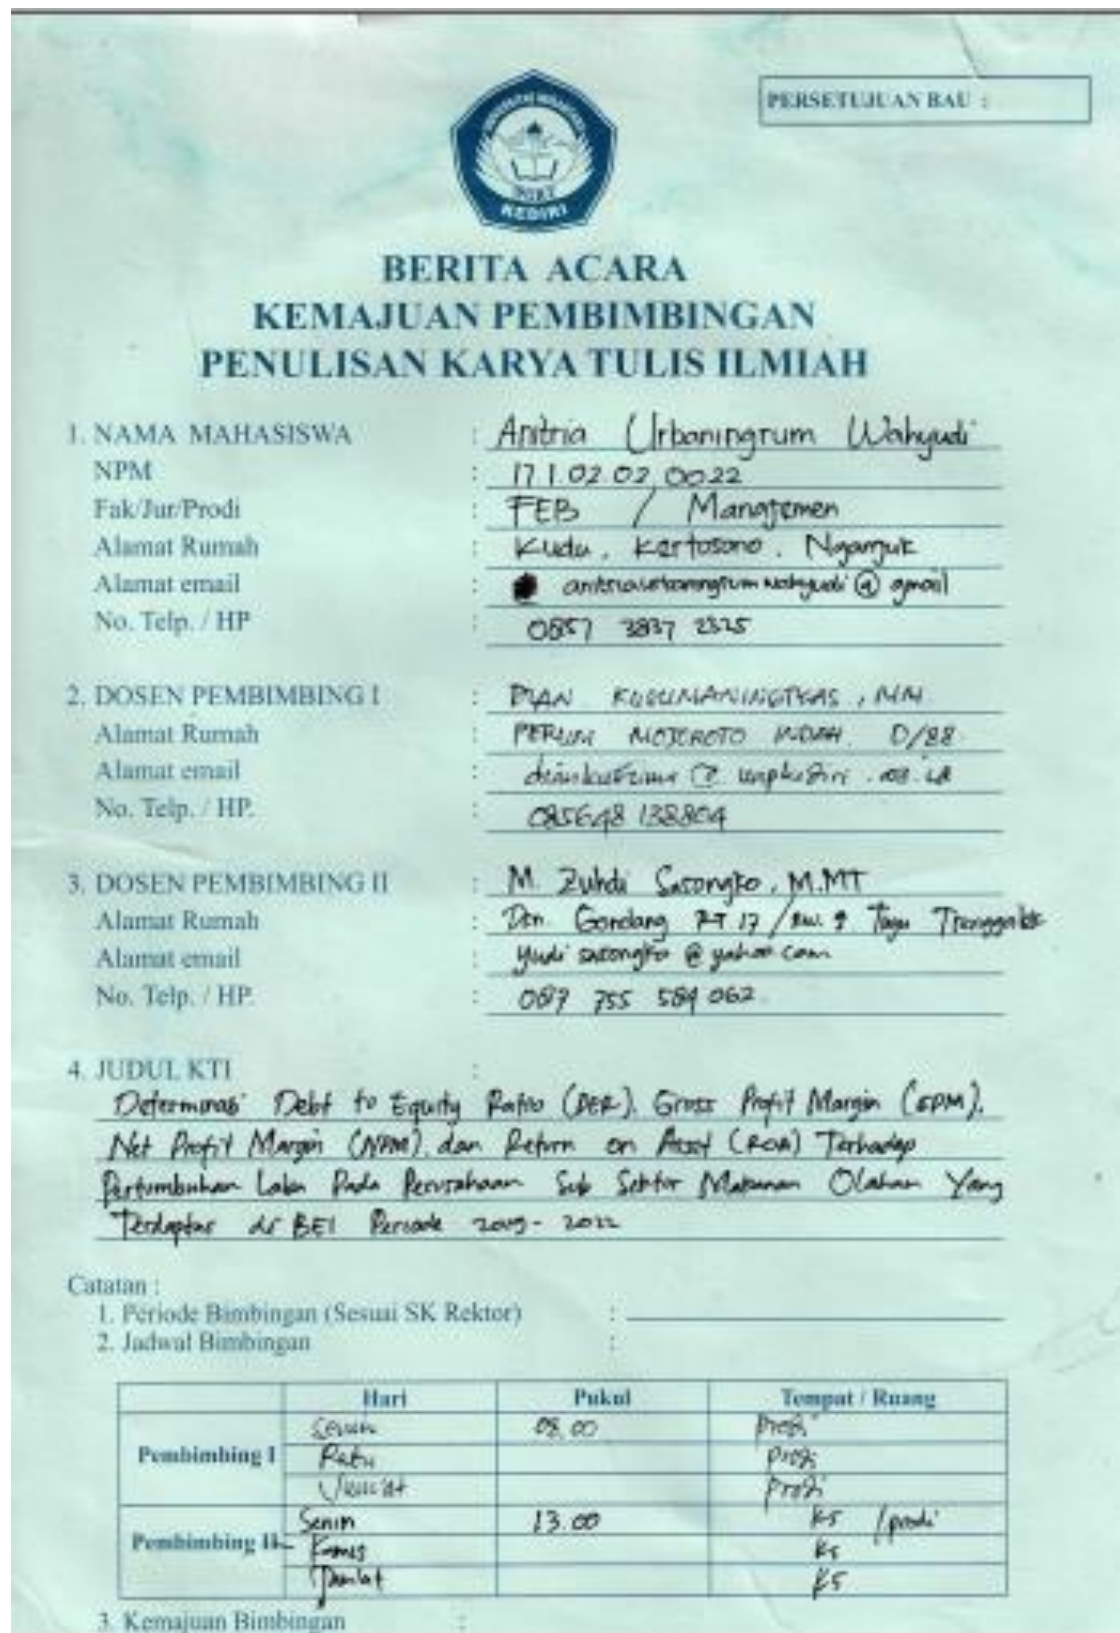 PERSETUJUAN BAU :
KEDIRI
BERITA ACARA
KEMAJUAN PEMBIMBINGAN
PENULISAN KARYA TULIS ILMIAH
1. NAMA MAHASISWA : Anitria Urbaningrum Wahyudi
NPM : 17 1.02.02.0022
Fak/Jur/Prodi : FEB / Manajemen
Alamat Rumah : Kudu, Kertosono, Nganjuk
Alamat email : anitriaurbaningrumwahyudi@gmail
No. Telp. / HP : 0857 3837 2325
2. DOSEN PEMBIMBING I : DIAN KUSUMANINGTYAS, MM.
Alamat Rumah : PERUM MOJOROTO INDAH D/88
Alamat email :
No. Telp. / HP. : 085648 138804
3. DOSEN PEMBIMBING II : M. Zuhdi Sasongko, M.MT
Alamat Rumah : Dsn. Gondang RT 17 / RW. 9 Tugu Trenggalek
Alamat email : yudi sasongko @ yahoo.com
No. Telp. / HP. : 087 755 584 062
4. JUDUL KTI :
Determinasi Debt to Equity Ratio (DER), Gross Profit Margin (GPM),
Net Profit Margin (NPM), dan Return on Asset (ROA) Terhadap
Pertumbuhan Laba Pada Perusahaan Sub Sektor Makanan Olahan Yang
Terdaptar di BEI Periode 2019 - 2022
Catatan :
1. Periode Bimbingan (Sesuai SK Rektor) :
2. Jadwal Bimbingan :
Hari Pukul Tempat / Ruang
Pembimbing I Senin 08.00 Prodi
Rabu Prodi
Jum'at Prodi
Pembimbing II Senin 13.00 K5 / prodi
Kamis K5
Jum'at K5
3. Kemajuan Bimbingan :